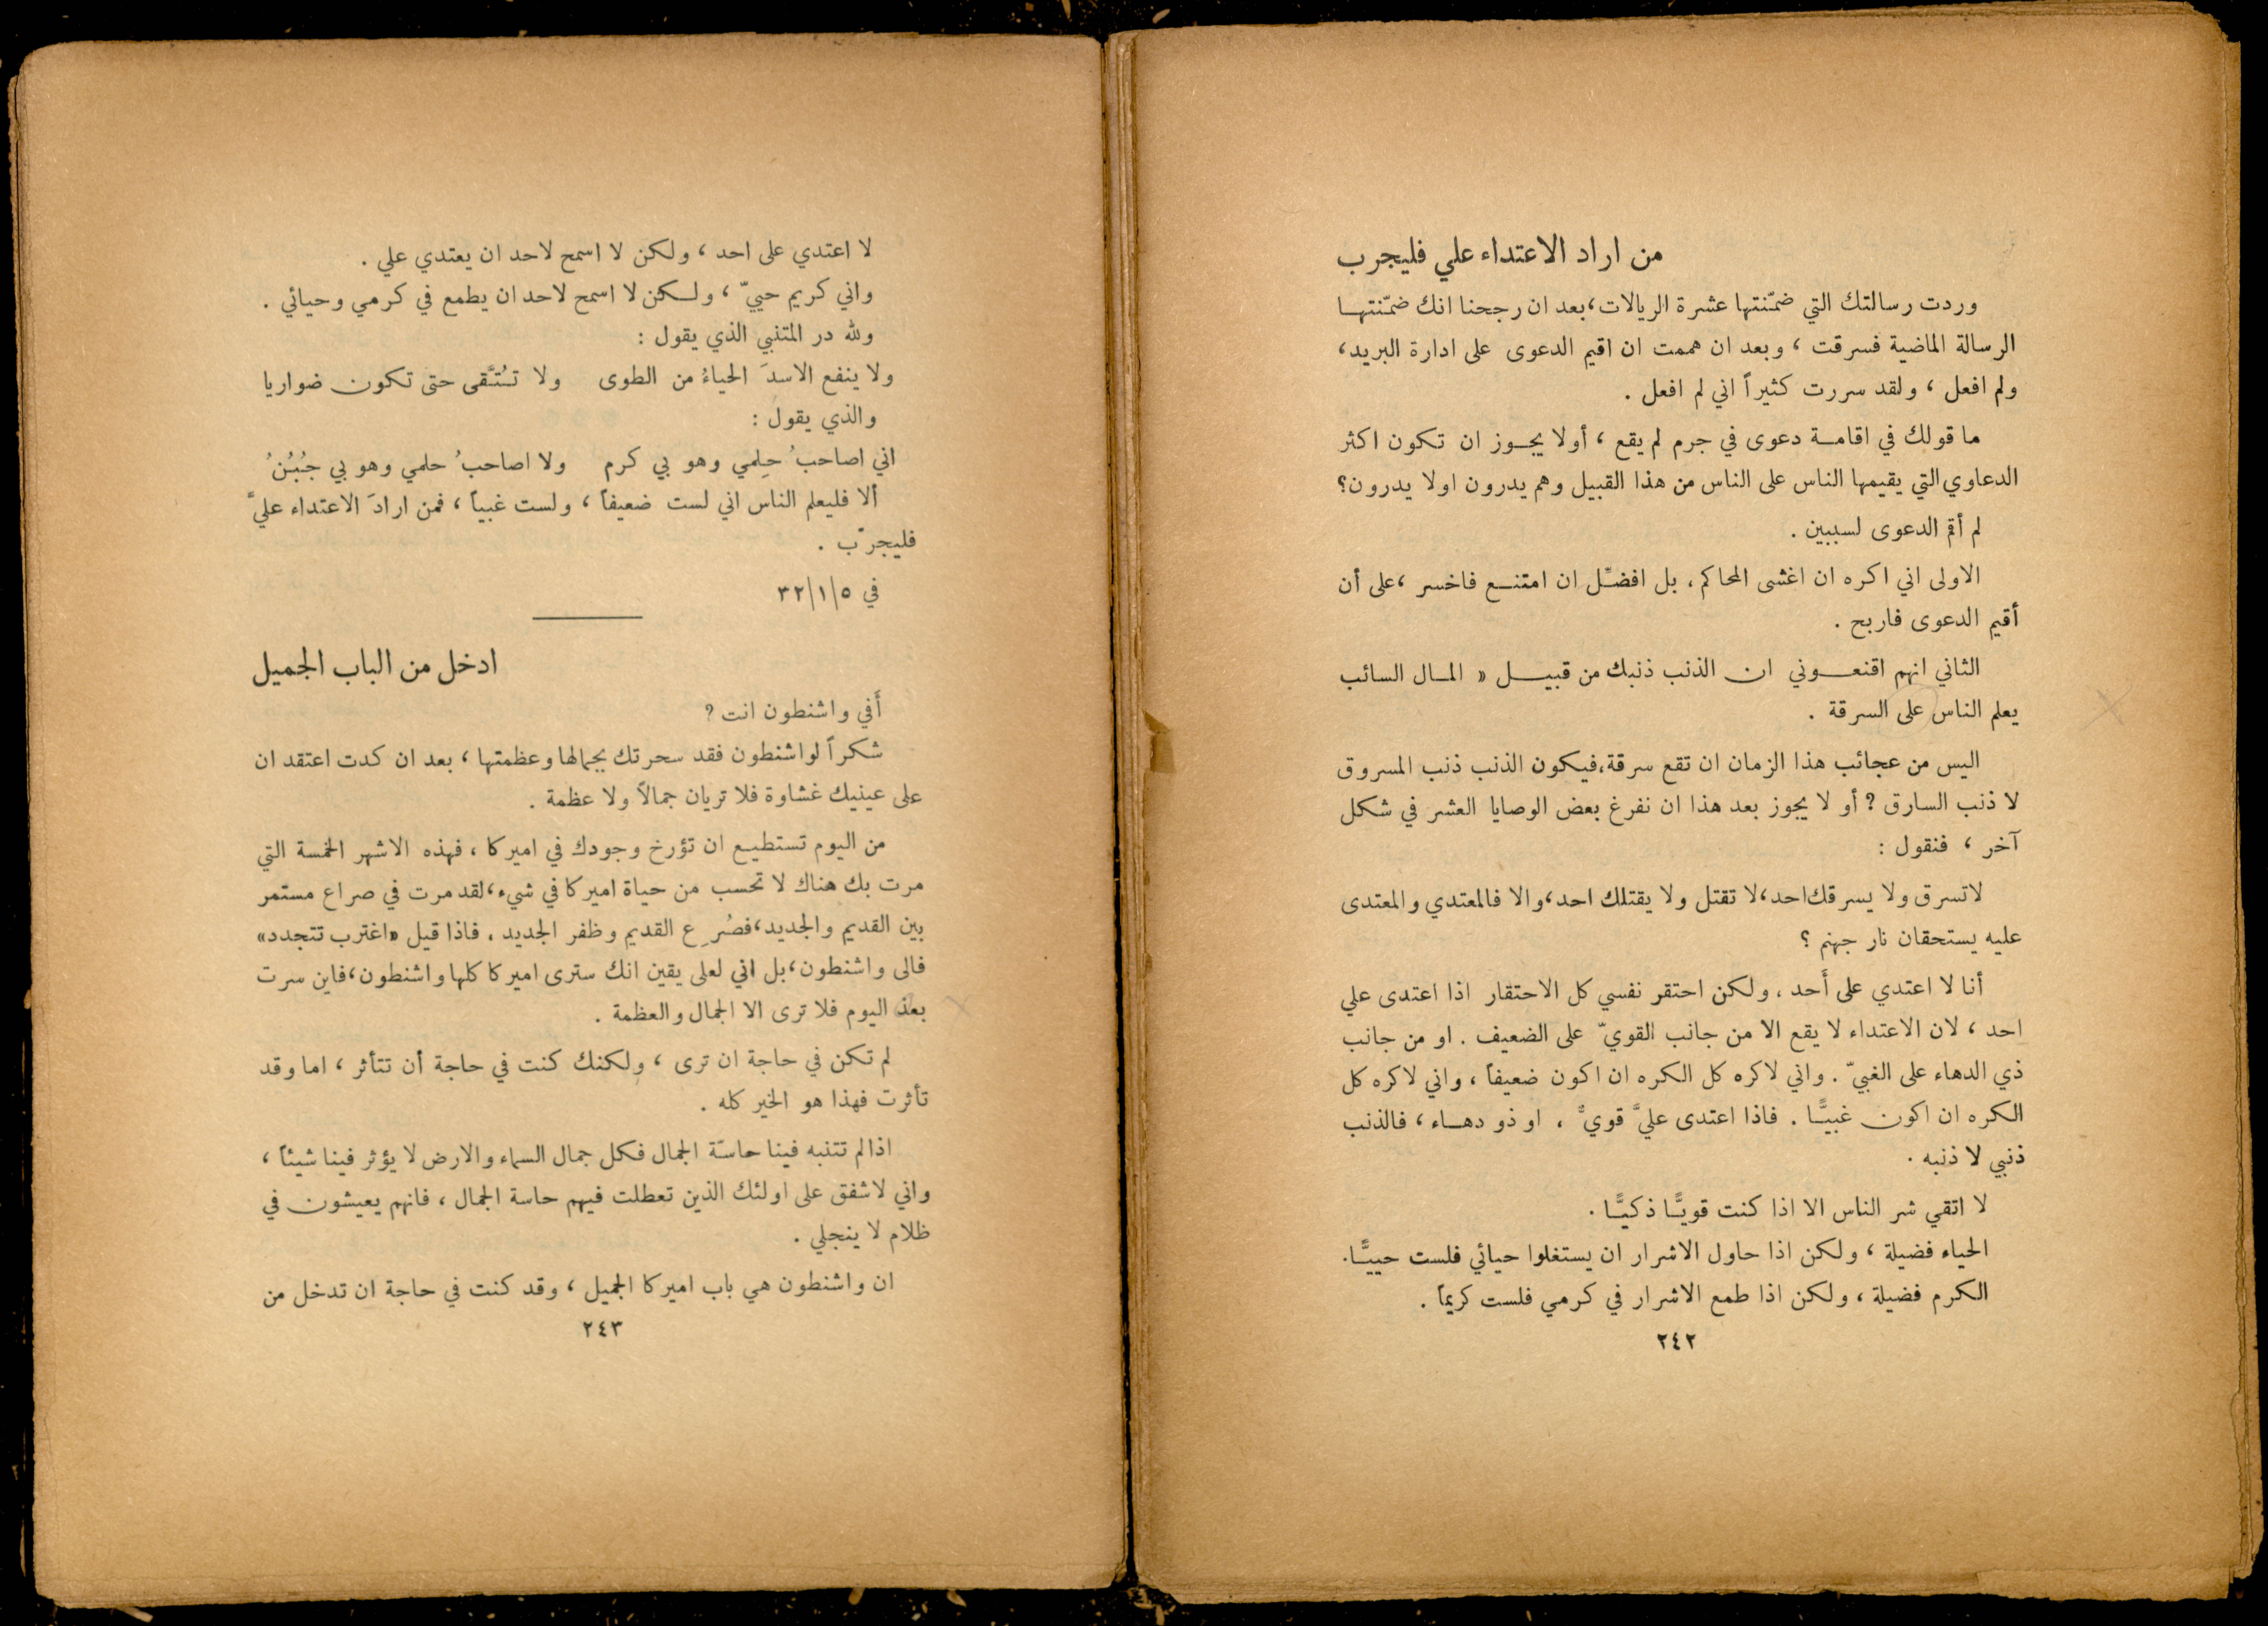 من اراد الاعتداء علي فليجرب
وردت رسالتك التي ضمّنتها عشرة الريالات، بعد ان رجحنا انك ضمّنتهـا
الرسالة الماضية فسرقت ، وبعد ان هممت ان اقيم الدعوى على ادارة البريد،
ولم افعل ، ولقد سررت كثيراً اني لم افعل .
ما قولك في اقامـة دعوى في جرم لم يقع ، أولا يجـوز ان تكون اكثر
الدعاوي التي يقيمها الناس على الناس من هذا القبيل وهم يدرون اولا يدرون؟
لم أقم الدعوى لسببين .
الاولى اني اكره ان اغشى المحاكم ، بل افضّل ان امتنـع فاخسر ، على أن
أقيم الدعوى فاربح .
الثاني انهم اقنعـوني ان الذنب ذنبك من قبيـل « المـال السائب
يعلم الناس على السرقة .
اليس من عجائب هذا الزمان ان تقع سرقة، فيكون الذنب ذنب المسروق
لا ذنب السارق ? أو لا يجوز بعد هذا ان نفرغ بعض الوصايا العشر في شكل
آخر ، فنقول :
لا تسرق ولا يسرقك احد، لا تقتل ولا يقتلك احد، والا فالمعتدي والمعتدى
عليه يستحقان نار جهنم ؟
أنا لا اعتدي على أَحد ، ولكن احتقر نفسي كل الاحتقار اذا اعتدى علي
احد ، لان الاعتداء لا يقع الا من جانب القويّ على الضعيف . او من جانب
ذي الدهاء على الغبيّ . واني لاكره كل الكره ان اكون ضعيفاً ، واني لاكره كل
الكره ان اكون غبيًّـا . فاذا اعتدى عليَّ قويٌّ ، او ذو دهـاء ، فالذنب
ذنبي لا ذنبه .
لا اتقي شر الناس الا اذا كنت قويًّـا ذكيًّـا .
الحياء فضيلة ، ولكن اذا حاول الاشرار ان يستغلوا حيائي فلست حييًّـا.
الكرم فضيلة ، ولكن اذا طمع الاشرار في كرمي فلست كريماً .
٢٤٢
لا اعتدي على احد ، ولكن لا اسمح لاحد ان يعتدي علي .
واني كريم حييّ ، ولـكن لا اسمح لاحد ان يطمع في كرمي وحيائي .
ولله در المتنبي الذي يقول :
ولا ينفع الاسدَ الحياءُ من الطوى ولا تُتَّقى حتى تكون ضواريا
والذي يقول :
اني اصاحبُ حِلمي وهو بي كرم ولا اصاحبُ حلمي وهو بي جُبُنُ
ألا فليعلم الناس اني لست ضعيفاً ، ولست غبياً ، فمن ارادَ الاعتداء عليَّ
فليجرّب .
في ٥/١/٣٢
ادخل من الباب الجميل
أَفي واشنطون انت ?
شكراً لواشنطون فقد سحرتك بجمالها وعظمتها ، بعد ان كدت اعتقد ان
على عينيك غشاوة فلا تريان جمالاً ولا عظمة .
من اليوم تستطيـع ان تؤرخ وجودك في اميركا ، فهذه الاشهر الخمسة التي
مرت بك هناك لا تحسب من حياة اميركا في شيء، لقد مرت في صراع مستمر
بين القديم والجديد، فصُرِع القديم وظفر الجديد ، فاذا قيل «اغترب تتجدد»
فالى واشنطون، بل اني لعلى يقين انك سترى اميركا كلها واشنطون، فاين سرت
بعد اليوم فلا ترى الا الجمال والعظمة .
لم تكن في حاجة ان ترى ، ولكنك كنت في حاجة أن تتأثر ، اما وقد
تأثرت فهذا هو الخير كله .
اذا لم تتنبه فينا حاسّة الجمال فكل جمال السماء والارض لا يؤثر فينا شيئاً ،
واني لاشفق على اولئك الذين تعطلت فيهم حاسة الجمال ، فانهم يعيشون في
ظلام لا ينجلي .
ان واشنطون هي باب اميركا الجميل ، وقد كنت في حاجة ان تدخل من
٢٤٣